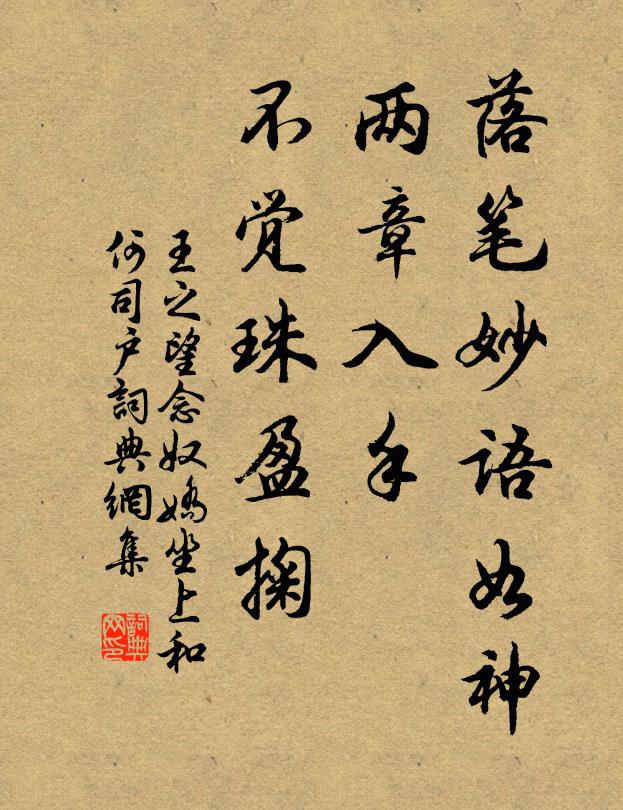 落笔妙语如神
两章入手
不觉珠盈掬
王之望念奴娇坐上和
何司户詞典網集
詞典
网印